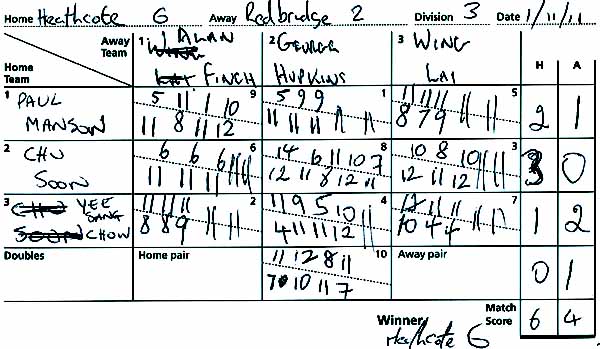 Home Heathcote 6 Away Redbridge 2 Division 3 Date 1/11/11
Away Team 1 ALAN FINCH 2 GEORGE HOPKINS 3 WING LAI H A
Home Team
1 PAUL MANSON
5 11 1 10 9
11 8 11 12
5 9 9 1
11 11 11
11 11 11 11 5
8 7 9
2 1
2 CHU SOON
6 6 6 6
11 11 11
14 6 11 10 7 8
12 11 8 12 11
10 8 10 3
12 11 12
3 0
3 YEE SANG CHOW
11 11 11 2
8 8 9
11 9 5 10 4
4 11 11 12
12 11 11 7
10 4 4
1 2
Doubles Home pair
11 12 8 11 10
7 10 11 7
Away pair
0 1
Winner Heathcote 6 Match Score 6 4